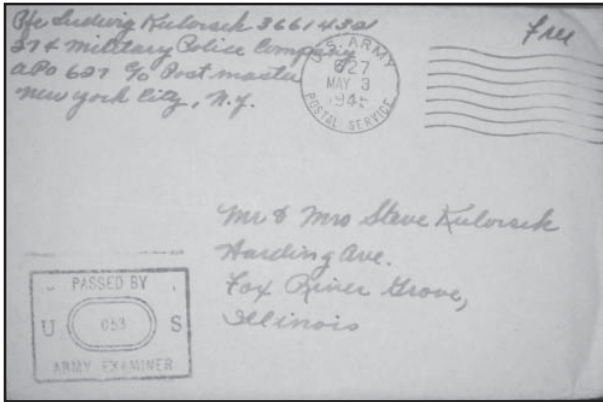 Pfc Ludwig Kulovsek 36614321
274 Military Police Company
APO 627 c/o Postmaster
New York City, N.Y.
U.S. ARMY
627
MAY 3
194
POSTAL SERVICE
Free
Mr & Mrs Steve Kulovsek
Harding Ave.
Fox River Grove,
Illinois
PASSED BY
U 053 S
ARMY EXAMINER